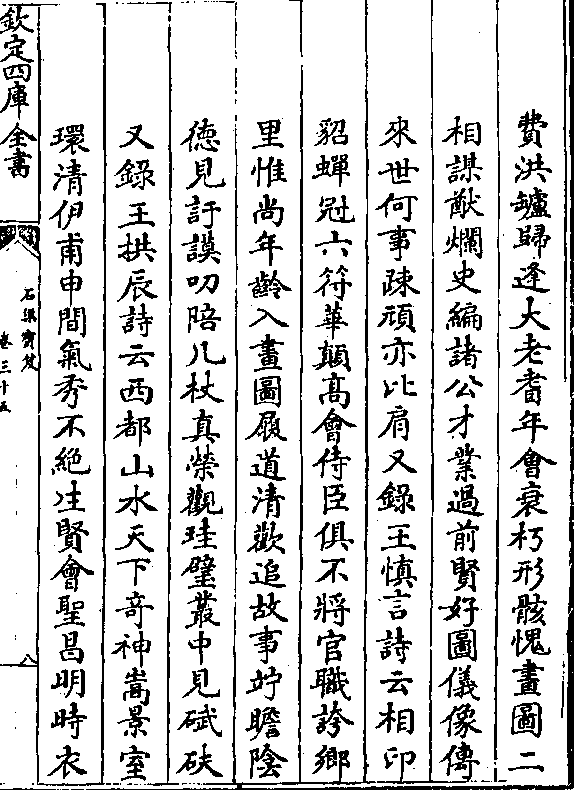 費洪鑪歸逢大老耆年會衰朽形骸愧畫圖二
相謀猷爛史編諸公才業過前賢好圖儀像傳
來世何事疎頑亦比肩又錄王慎言詩云相印
貂蟬冠六符華顛髙會侍臣俱不將官職誇鄉
里惟尚年齡入畫圖履道清歡追故事竚瞻陰
徳見訏謨叨陪几杖真榮觀珪璧叢中見碔砆
又錄王拱辰詩云西都山水天下竒神嵩景室
環清伊甫申間氣秀不絶生賢㑹聖昌明時衣
欽定四庫全書
石渠寶笈
卷三十五
八